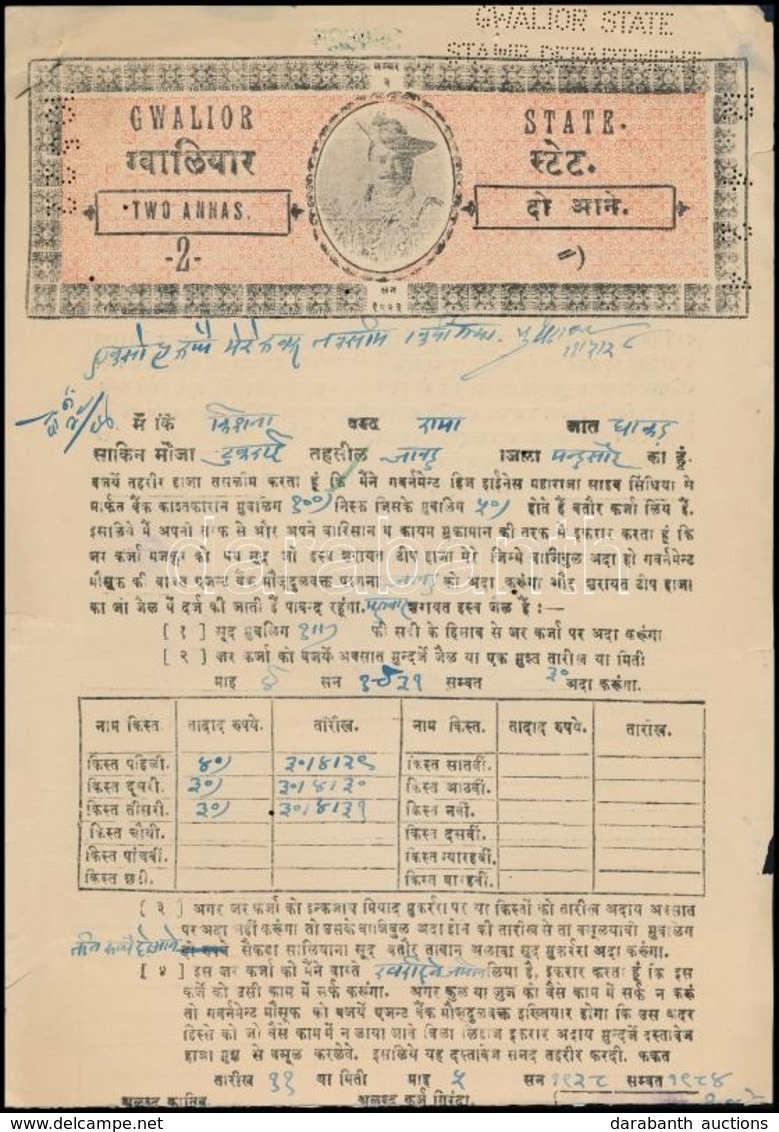 GWALIOR STATE
STAMP DEPARTMENT
नम्बर
२
GWALIOR STATE.
ग्वालियार स्टेट.
TWO ANNAS. दो आने.
-2- =)
सन
१९२३
में कि किशना वल्द रामा जात धाकड
साकिन मौजा तहसील जावद जिला मन्दसौर का हूं.
बजर्ये तहरीर हाजा तसलीम करता हूं कि मैंने गवर्नमेन्ट हिज हाईनेस महाराजा साहब सिंधिया से
मार्फत बैंक काश्तकारान मुबलिग १००) निस्फ जिसके मुबलिग ५०) होते हैं बतौर कर्जा लिये हैं.
इसलिये मैं अपनी तरफ से और अपने वारिसान व कायम मुकामान की तरफ से इकरार करता हूं कि
जर कर्जा मजकूर को मय सूद जो हस्ब शरायत टीप हाजा मेरे जिम्मे वाजिबुल अदा हो गवर्नमेन्ट
मौसूफ की वास्ते एजन्ट बैंक मौजूदुलवक्त परगना जावद को अदा करूंगा और शरायत टीप हाजा
का जो जैल में दर्ज की जाती हैं पाबन्द रहूंगा. शरायत हस्ब जैल हैं :—
[ १ ] सूद मुबलिग १॥) फी सदी के हिसाब से जर कर्जा पर अदा करूंगा
[ २ ] जर कर्जा को बजर्ये अक्सात मुन्दर्जे जैल या एक मुश्त तारीख या मिती
३०
माह ४ सन १९३१ सम्वत अदा करूंगा.
नाम किस्त. तादाद रुपये. तारीख. नाम किस्त. तादाद रुपये. तारीख.
किस्त पहिली. ४०) ३०।४।२९ किस्त सातवीं.
किस्त दूसरी. ३०) ३०।४।३० किस्त आठवीं.
किस्त तीसरी. ३०) ३०।४।३१ किस्त नवीं.
किस्त चौथी. किस्त दसवीं.
किस्त पांचवीं. किस्त ग्यारहवीं.
किस्त छठी. किस्त बारहवीं.
[ ३ ] अगर जर कर्जा को इन्कजाय मियाद मुकर्ररा पर या किस्तों को तारीख अदाय अक्सात
पर अदा नहीं करूंगा तो उसके वाजिबुल अदा होने की तारीख से ता वसूलयाबी मुबलिग
सैकडा सालियाना सूद बतौर तावान अलावा सूद मुकर्ररा अदा करूंगा.
[ ४ ] इस जर कर्जा को मैंने वास्ते लिया है, इकरार करता हूं कि इस
कर्जे को उसी काम में सर्फ करूंगा. अगर कुल या जुज को वैसे काम में सर्फ न करूं
तो गवर्नमेन्ट मौसूफ को बजर्ये एजन्ट बैंक मौजूदुलवक्त इख्तियार होगा कि उस कदर
हिस्से को जो वैसे काम में न लाया जावे बिला लिहाज इकरार अदाय मुन्दर्जे दस्तावेज
हाजा मुझ से वसूल करलेवे. इसलिये यह दस्तावेज सनद तहरीर करदी. फकत
तारीख ११ या मिती माह ५ सन १९२८ सम्वत १९८४
अलब्द कातिब. अलब्द कर्ज गिरंदा.
darabanth
darabanth auctions
www.delcampe.net